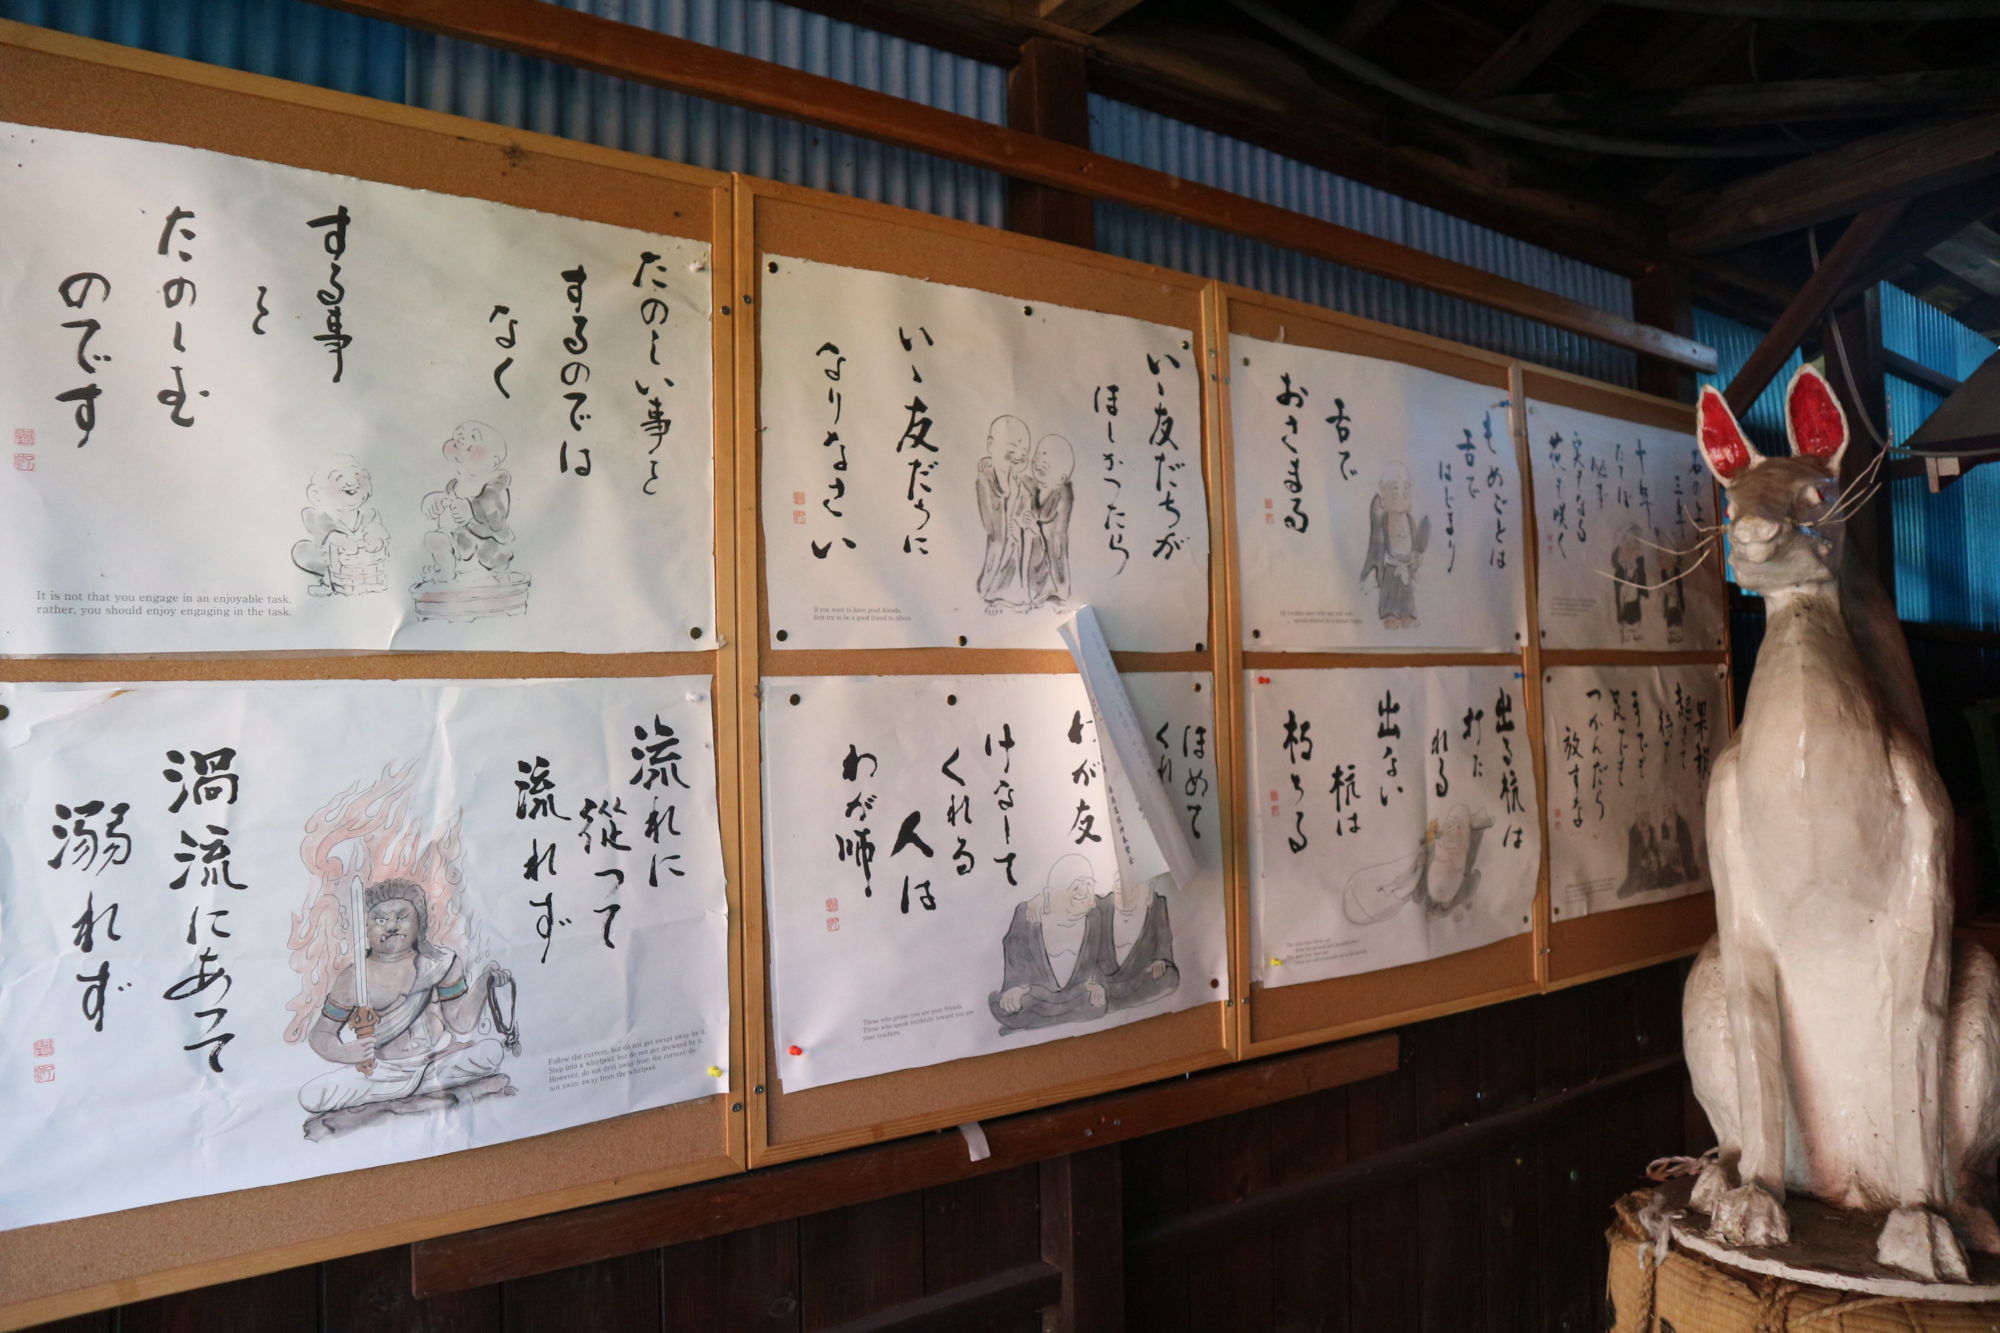 たのしい事を
するのでは
なく
する事
を
たのしむ
のです
It is not that you engage in an enjoyable task,
rather, you should enjoy engaging in the task.
いゝ友だちが
ほしかったら
いゝ友だちに
なりなさい
If you want to have good friends,
first try to be a good friend to others.
もめごとは
舌で
はじまり
舌で
おさまる
石の上
三年
十年
たてば
必ず
実となる
花も咲く
流れに
従って
流れず
渦流にあって
溺れず
Follow the current, but do not get swept away by it.
Step into a whirlpool, but do not get drowned by it.
However, do not drift away from the current do
not swim away from the whirlpool.
ほめて
くれ
わが友
けなして
くれる
人は
わが師
Those who praise you are your friends.
Those who speak truthfully toward you are
your teachers.
出る杭は
打た
れる
出ない
杭は
朽ちる
果報
待て
手でも
足でも
つかんだら
放すな